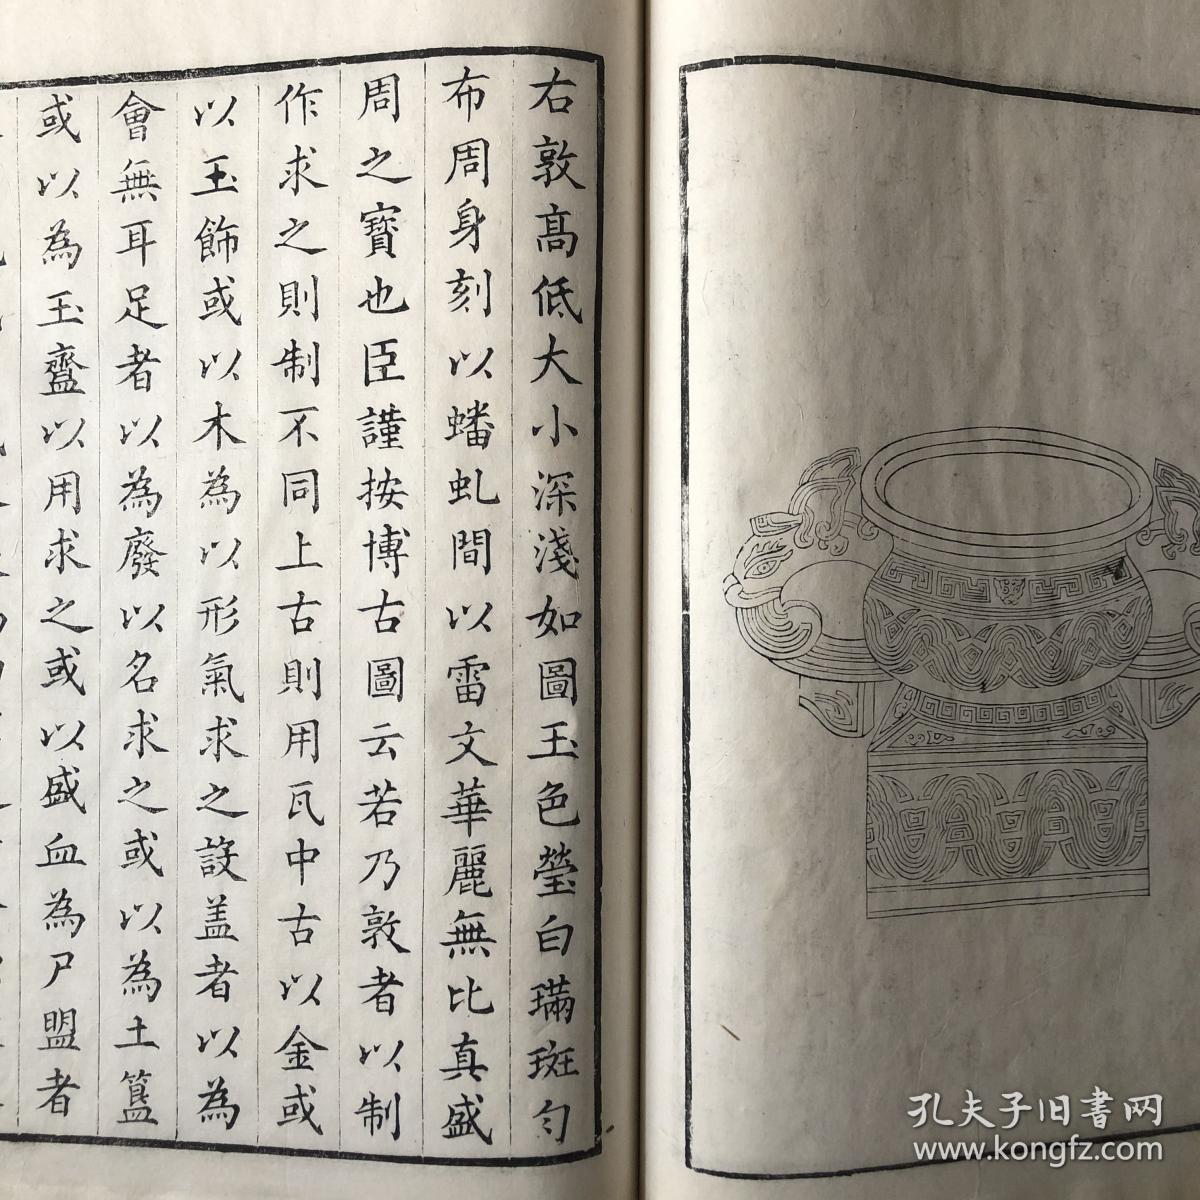 右敦髙低大小深淺如圖玉色瑩白璊斑勻
布周身刻以蟠虬間以雷文華麗無比真盛
周之寳也臣謹按博古圖云若乃敦者以制
作求之則制不同上古則用瓦中古以金或
以玉飾或以木為以形氣求之設盖者以為
會無耳足者以為廢以名求之或以為土簋
或以為玉齍以用求之或以盛血為尸盟者
孔夫子旧書网
www.kongfz.com